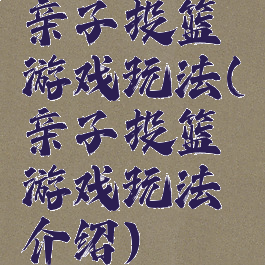 亲子投篮
游戏玩法(
亲子投篮
游戏玩法
介绍)